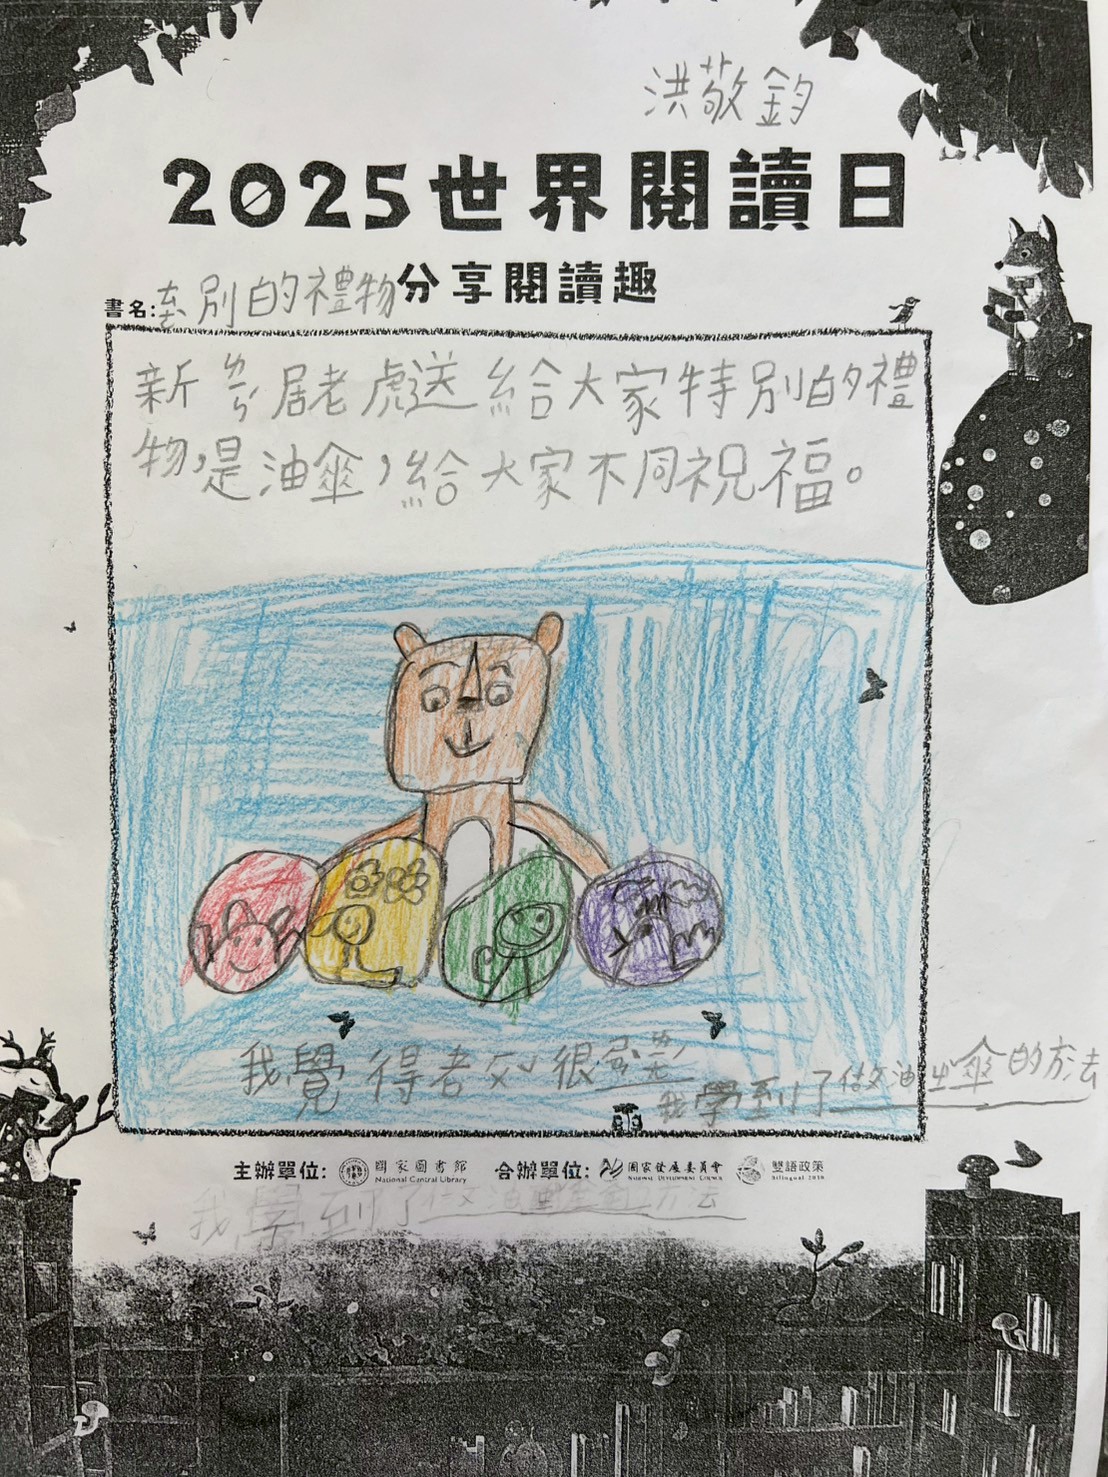 洪敬鈞
2025世界閱讀日
分享閱讀趣
書名:去別的禮物
新ㄌㄧㄣˊ居老虎送給大家特別的禮
物,是油傘,給大家不同祝福。
我覺得老 很
我學到了做油 傘的方法
主辦單位: 國家圖書館 National Central Library 合辦單位: 國家發展委員會 National Development Council 雙語政策 Bilingual 2030
我學到了 油 方法